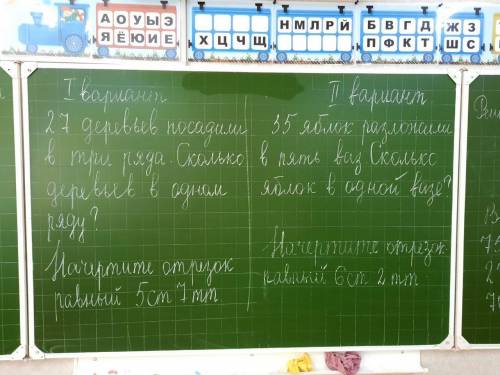 А О У Ы Э
Я Ё Ю И Е
Х Ц Ч Щ
Н М Л Р Й
Б В Г Д
П Ф К Т
Ж З
Ш С
I вариант
27 деревьев посадили
в три ряда. Сколько
деревьев в одном
ряду?
Начертите отрезок
равный 5 см 7 мм
II вариант
35 яблок разложили
в пять ваз Сколько
яблок в одной вазе?
Начертите отрезок
равный 6 см 2 мм